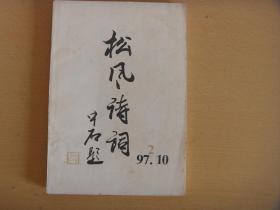 松风诗词
中石题
2
97.10